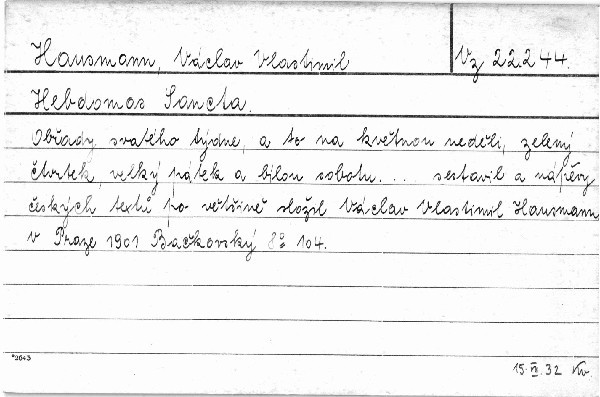 Hausmann, Václav Vlastimil
Vz 22.244.
Hebdomas Sancta.
Obřady svatého týdne, a to na květnou neděli, zelený
čtvrtek, velký pátek a bílou sobotu. . . sestavil a nápěvy
českých textů po většině složil Václav Vlastimil Hausmann
v Praze 1901 Bačkovský 8° 104.
*2643
15. 32 Kv.